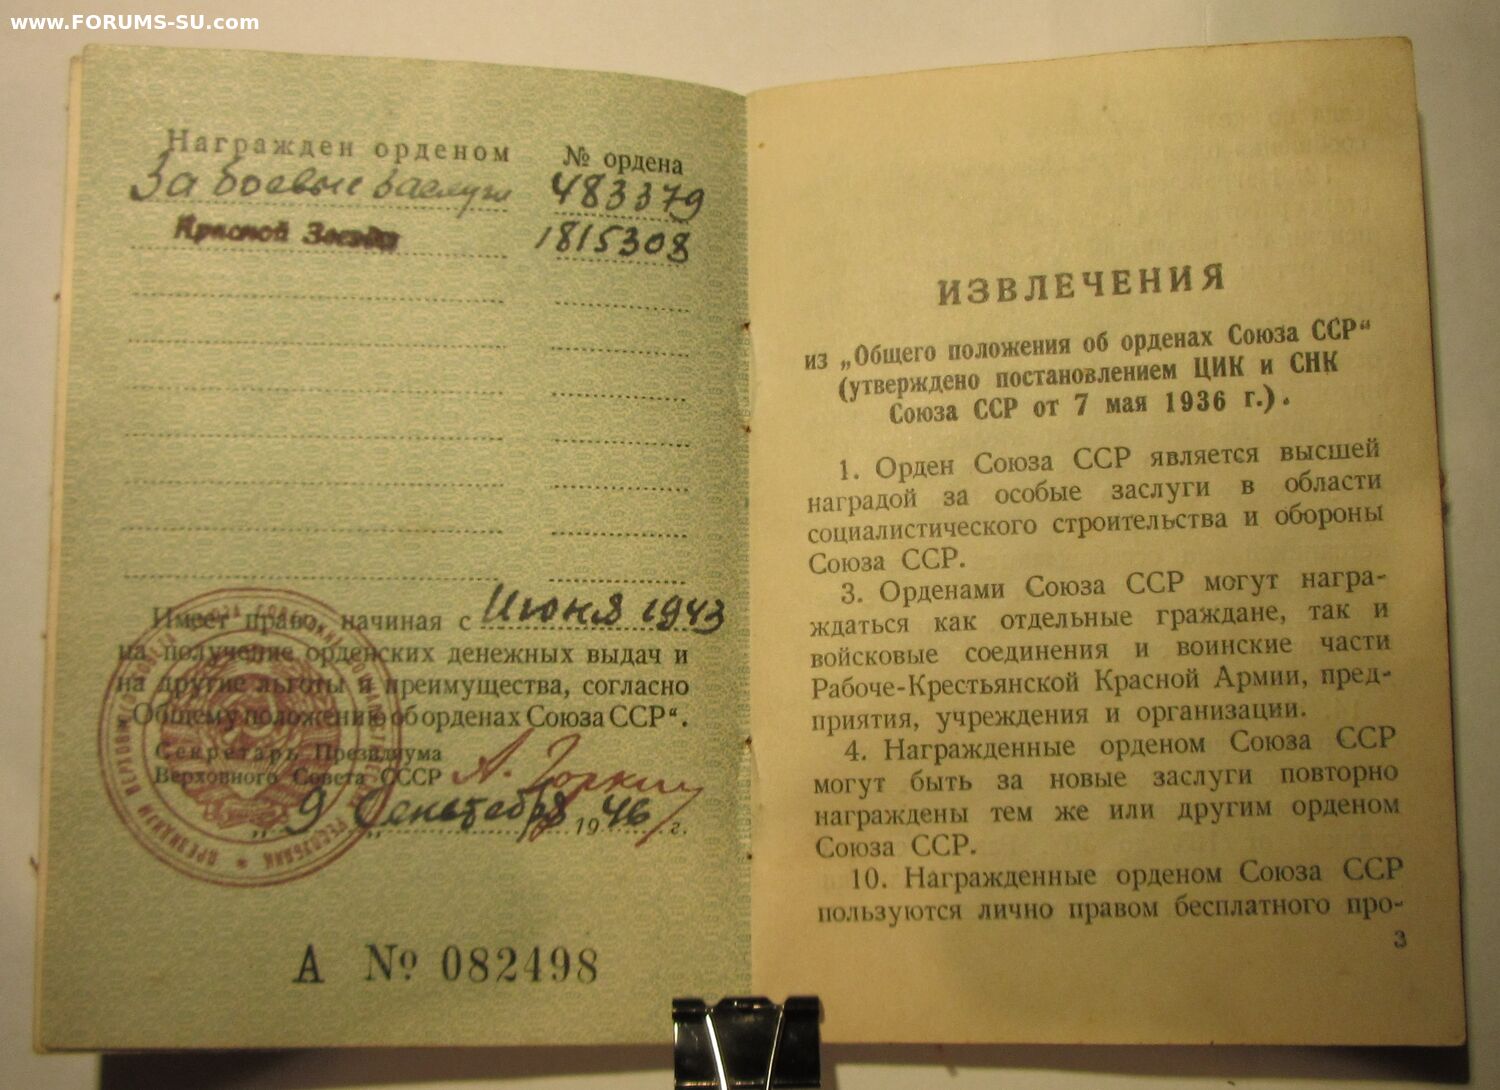 www.FORUMS-SU.com
Награжден орденом
№ ордена
За боевые заслуги
483379
Красной Звезды
1815308
Имеет право, начиная с Июня 1943
на получение орденских денежных выдач и
на другие льготы и преимущества, согласно
„Общему положению об орденах Союза ССР“.
Секретарь Президиума
Верховного Совета СССР А. Горкин
„9„ Сентября 1946 г.
А № 082498
ИЗВЛЕЧЕНИЯ
из „Общего положения об орденах Союза ССР“
(утверждено постановлением ЦИК и СНК
Союза ССР от 7 мая 1936 г.).
1. Орден Союза ССР является высшей
наградой за особые заслуги в области
социалистического строительства и обороны
Союза ССР.
3. Орденами Союза ССР могут награ-
ждаться как отдельные граждане, так и
войсковые соединения и воинские части
Рабоче-Крестьянской Красной Армии, пред-
приятия, учреждения и организации.
4. Награжденные орденом Союза ССР
могут быть за новые заслуги повторно
награждены тем же или другим орденом
Союза ССР.
10. Награжденные орденом Союза ССР
пользуются лично правом бесплатного про-
3